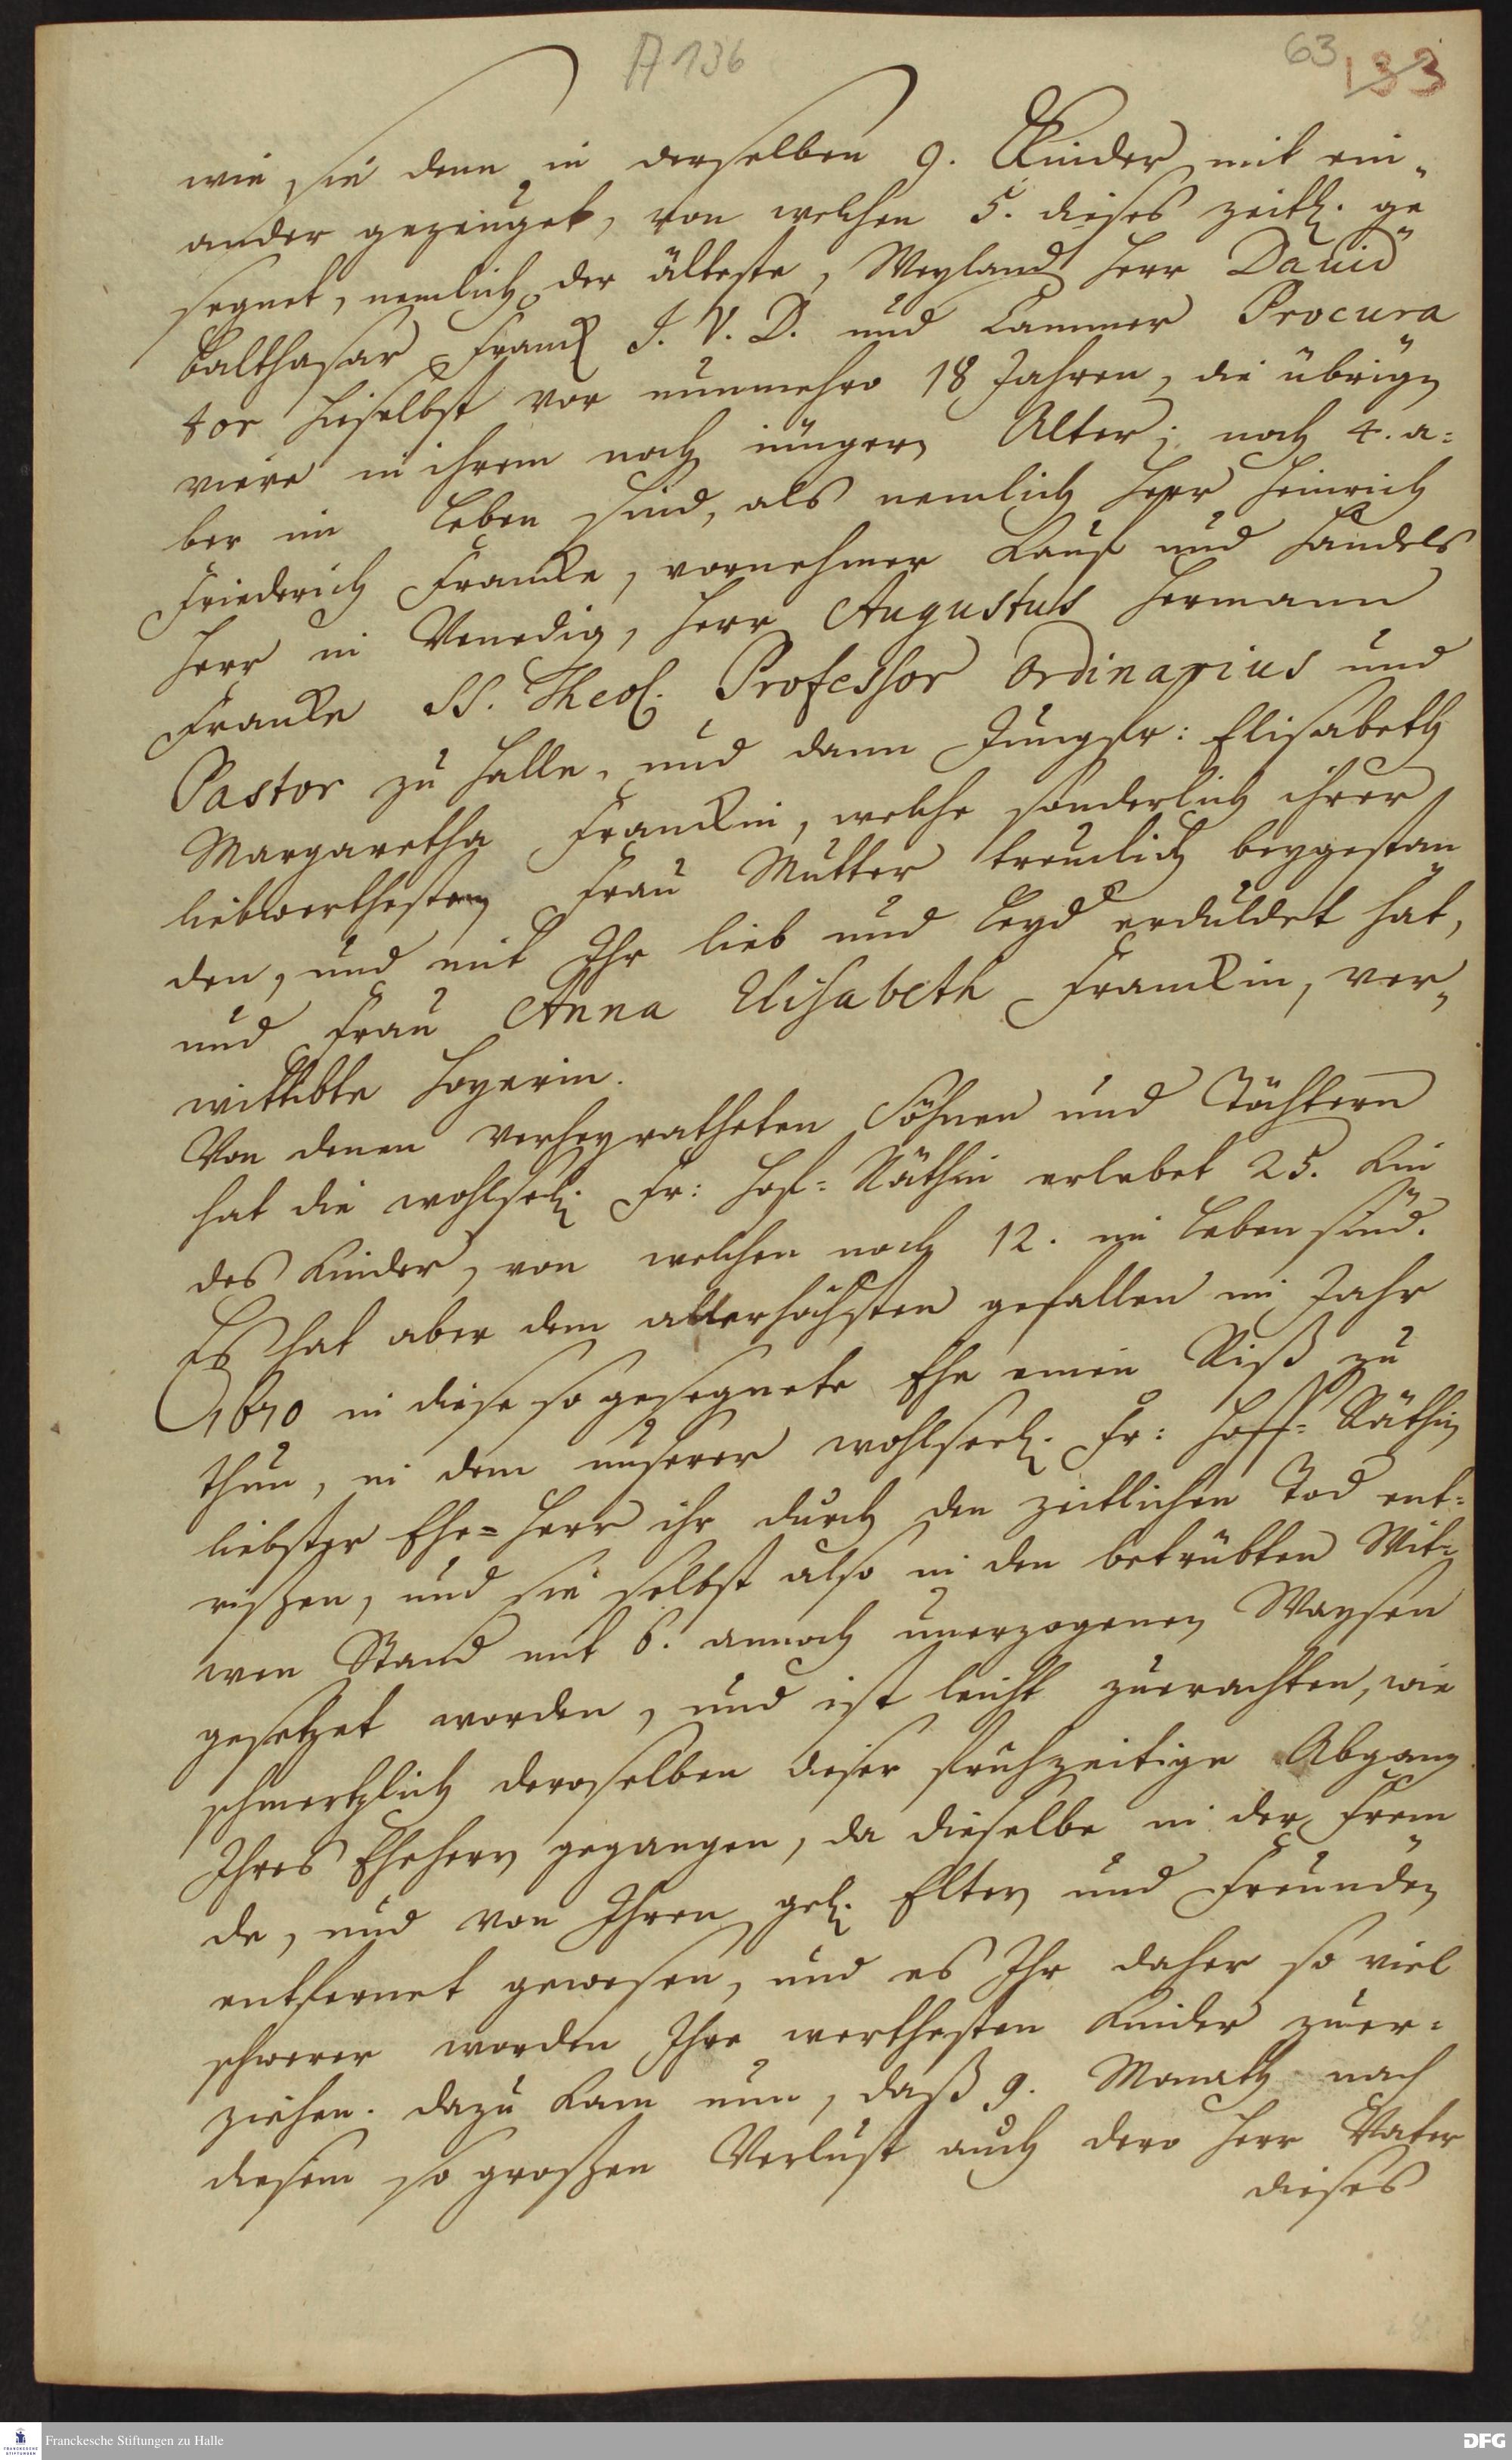 A 136
63
133
wie sie denn in derselben 9. Kinder mit ein„
ander gezeuget, von welchen 5. dieses zeitl. ge„
segnet, nemlich der älteste, Weyland Herr David
Balthasar Franck J. V. D. und Cammer Procura„
tor hieselbst vor nunmehro 18 Jahren, die übrigen
viere in ihrem noch jüngern Alter; noch 4. a=
ber im Leben sind, als nemlich Herr Heinrich
Friederich Francke, vornehmer Kauf und Handels
Herr in Venedig, Herr Augustus Hermann
Francke SS. Theol. Professor Ordinarius und
Pastor zu Halle, und dann Jungfr: Elisabeth
Margaretha Franckin, welche sonderlich ihrer
liebwerthesten Frau Mutter treulich beygestan„
den, und mit Ihr lieb und Leyd erduldet hat,
und Frau Anna Elisabeth Franckin, ver„
wittibte Hoyerin.
Von denen verheyratheten Söhnen und Töchtern
hat die wohlseel. Fr: Hof=Räthin erlebet 25. Kin„
des Kinder, von welchen noch 12. im Leben sind.
Es hat aber dem allerhöchsten gefallen im Jahr
1670 in diese so gesegnete Ehe einen Riß zu
thun, in dem unserer wohlseel. Fr: Hoff=Räthin
liebster Ehe=Herr ihr durch den zeitlichen Tod ent=
rissen, und sie selbst also in den betrübten Wit=
wen Stand mit 6. annoch unerzogenen Waysen
gesetzet worden, und ist leicht zuerachten, wie
schmertzlich deroselben dieser fruhzeitige Abgang
Ihres Eheherrn gegangen, da dieselbe in der Frem„
de, und von Ihren gel. Eltern und Freunden
entfernet gewesen, und es Ihr daher so viel
schwerer worden Ihre werthesten Kinder zuer=
ziehen. dazu kam nun, daß 9. Monath nach
diesem so grossen Verlust auch dero Herr Vater
dieses
Franckesche Stiftungen zu Halle
DFG